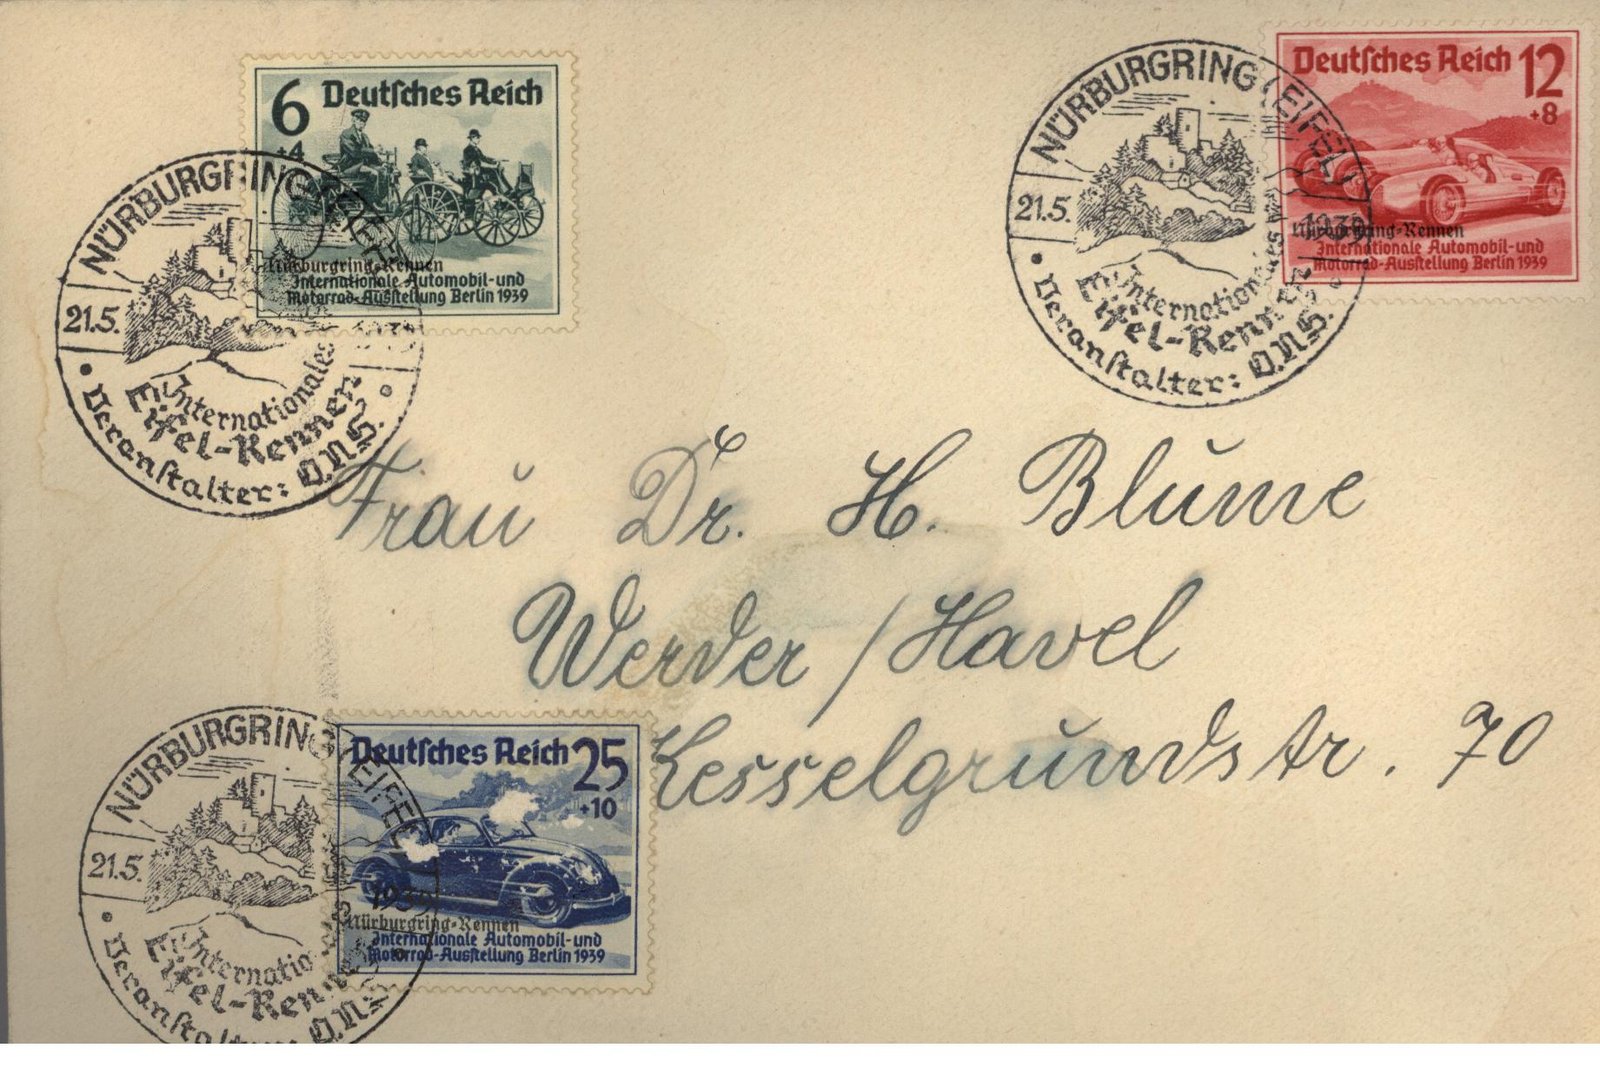 6 Deutsches Reich
+4
Nürburgring-Rennen
Internationale Automobil-und
Motorrad-Ausstellung Berlin 1939
NÜRBURGRING (EIFEL)
21.5. 1939
Internationales
Eifel-Rennen
Veranstalter: O.N.S.
Deutsches Reich 12
+8
Nürburgring-Rennen
Internationale Automobil-und
Motorrad-Ausstellung Berlin 1939
NÜRBURGRING (EIFEL)
21.5. 1939
Internationales
Eifel-Rennen
Veranstalter: O.N.S.
Frau Dr. H. Blume
Werder / Havel
Kesselgrundstr. 70
Deutsches Reich 25
+10
Nürburgring-Rennen
Internationale Automobil-und
Motorrad-Ausstellung Berlin 1939
NÜRBURGRING (EIFEL)
21.5. 1939
Internationales
Eifel-Rennen
Veranstalter: O.N.S.